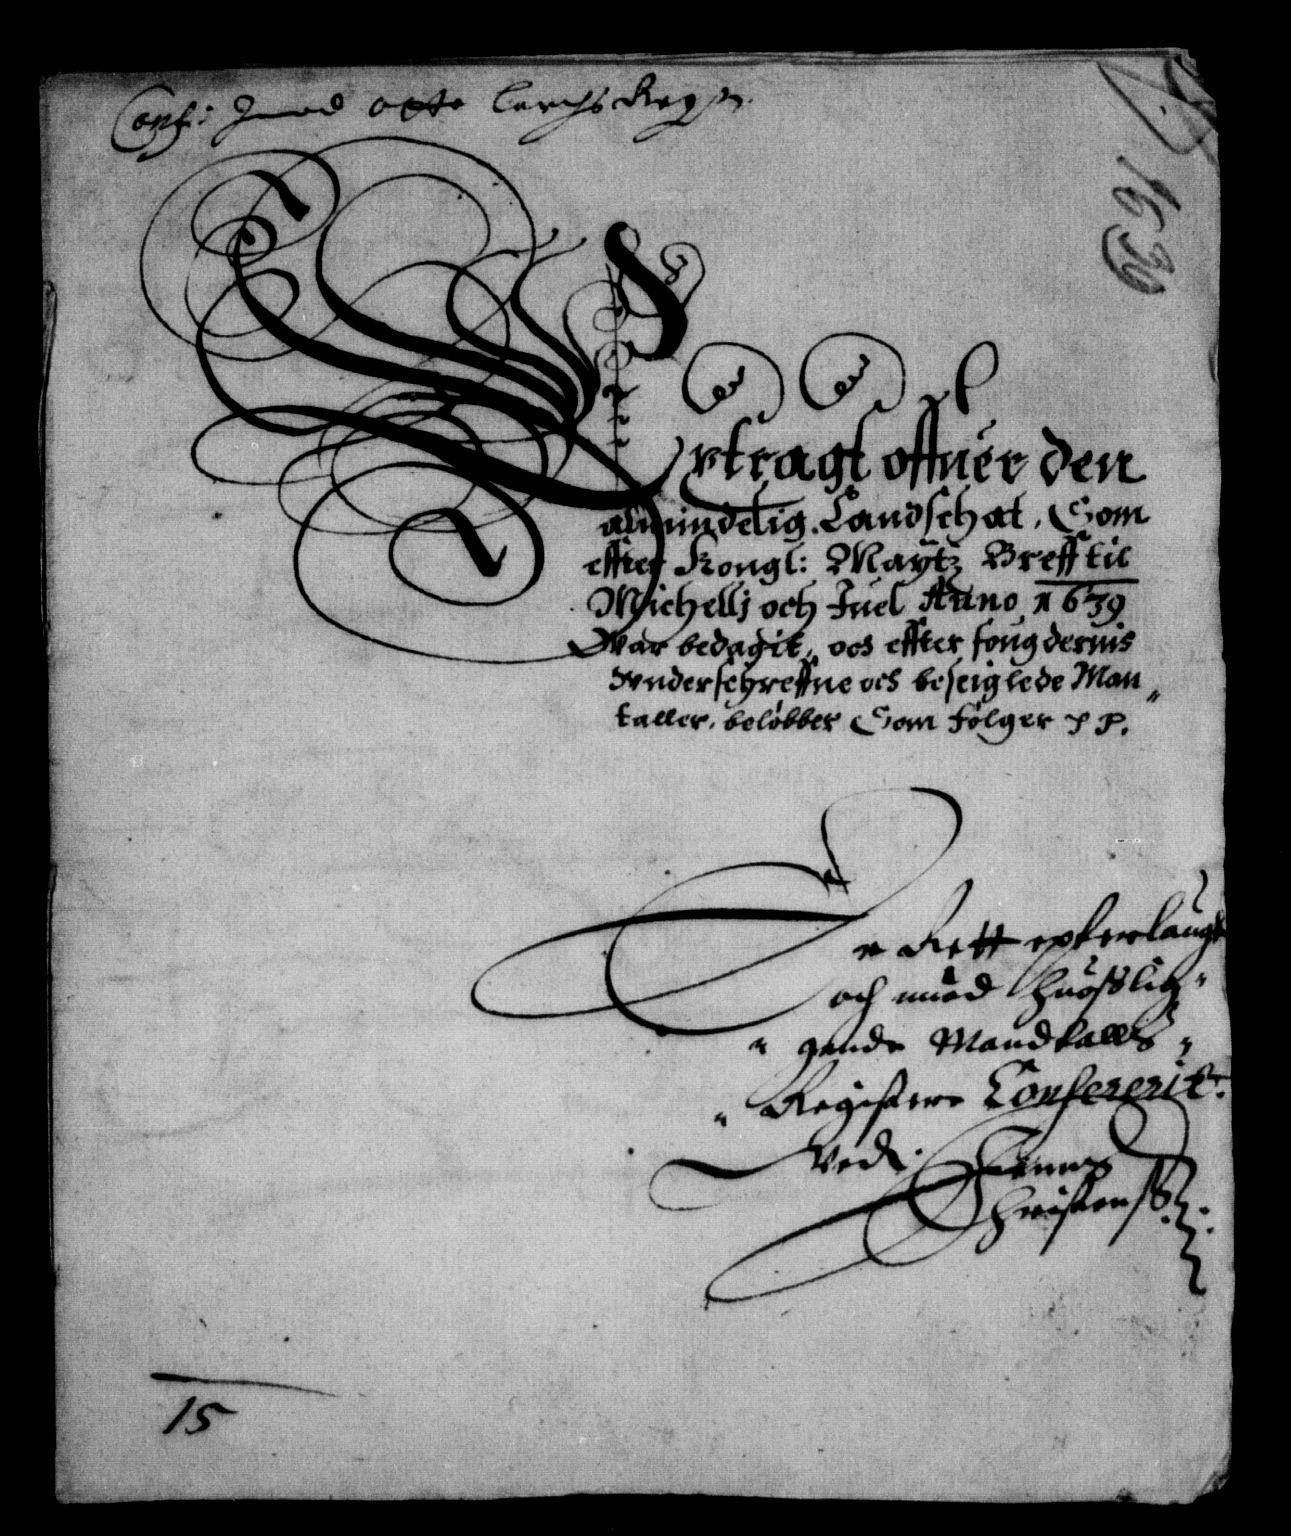 Conf: Imod otte lerchs Regr.
1639
Extragt offuer den
almindelig. Landschat, Som
effter Kongl: Maytz Breff til
Michellj och Juel Anno 1639
War bedagit, och effter fougdernis
Vnderschreffne och beseiglede Man„
taller, beløbber Som følger p p.
Er Rett epterlaugt
och med huoslig„
„ gende Mandtalls„
„ Registere Confererit.
Vedt.
Christenß:
15